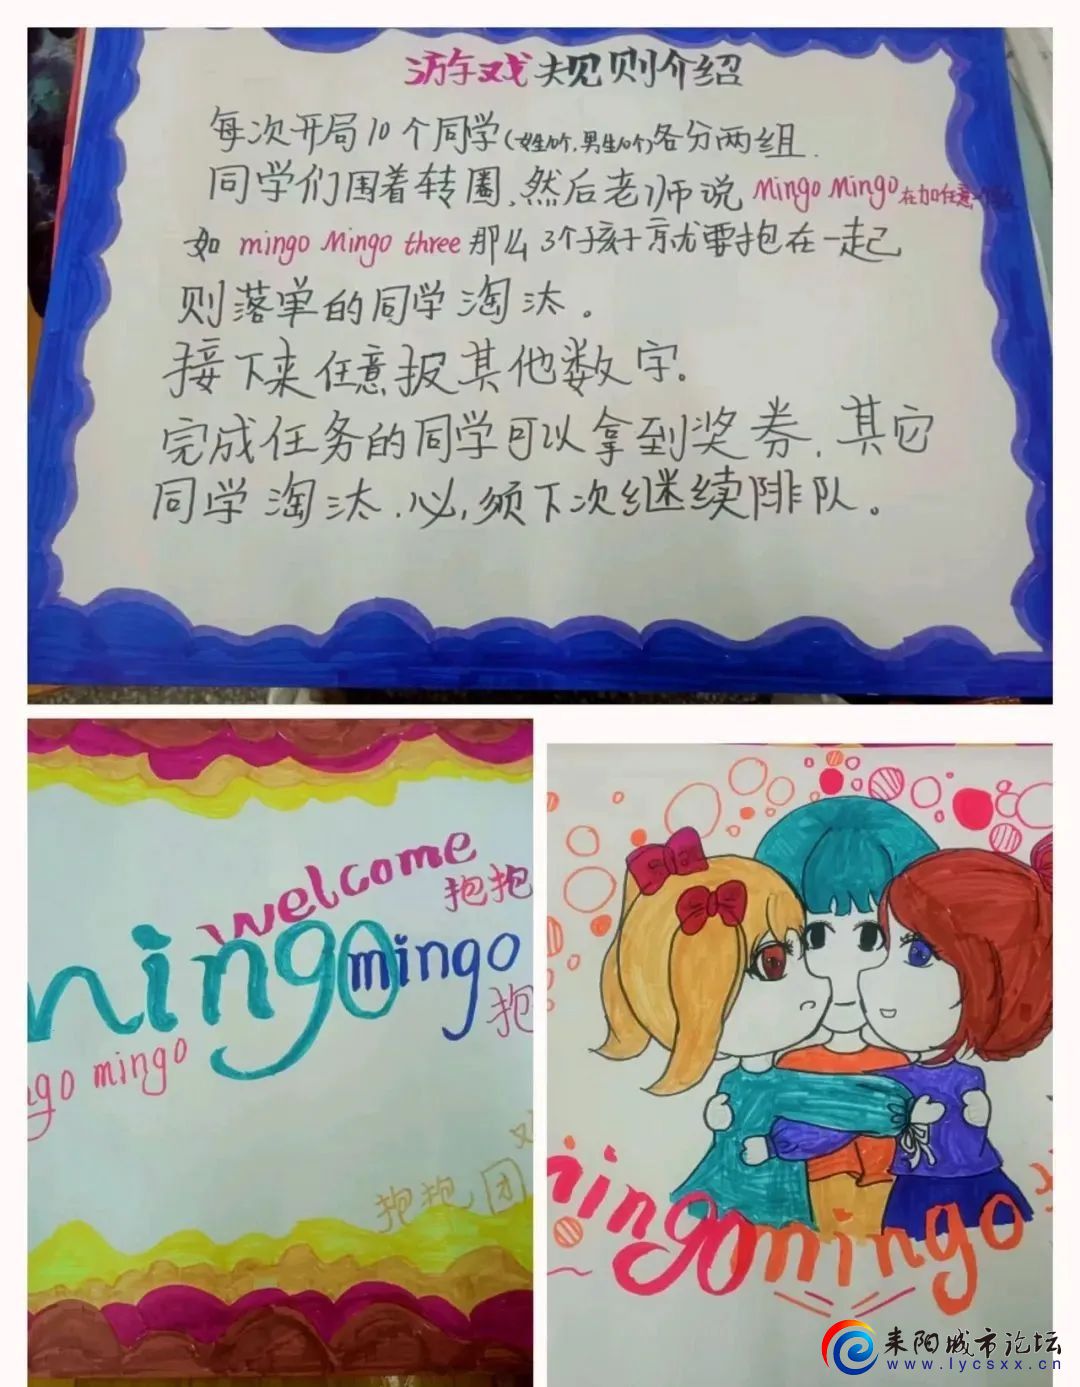 游戏规则介绍
每次开局10个同学(女生10个,男生10个)各分两组.
同学们围着转圈,然后老师说 Mingo Mingo在加任意一个
如 mingo Mingo three 那么3个孩子就要抱在一起
则落单的同学淘汰。
接下来任意报其他数字。
完成任务的同学可以拿到奖券,其它
同学淘汰.必须下次继续排队。
welcome
抱抱
mingo mingo
抱
go mingo
抱抱团
mingo mingo
耒阳城市论坛
www.lycsxx.cn